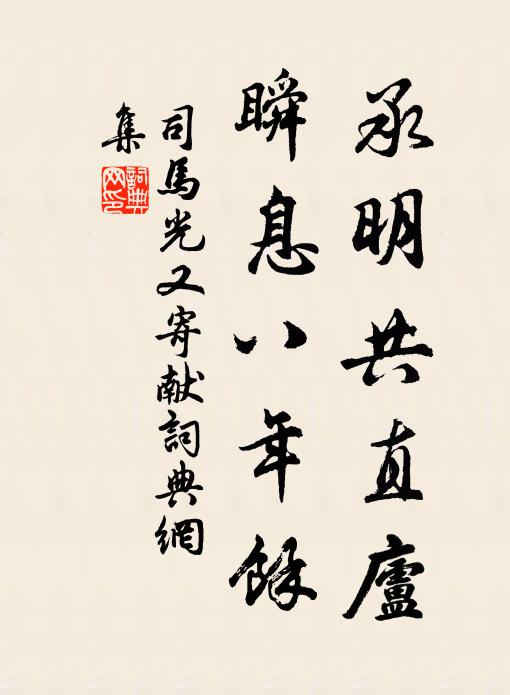 承明共直廬
瞬息八年餘
司馬光又寄献詞典網
集
詞典
网印